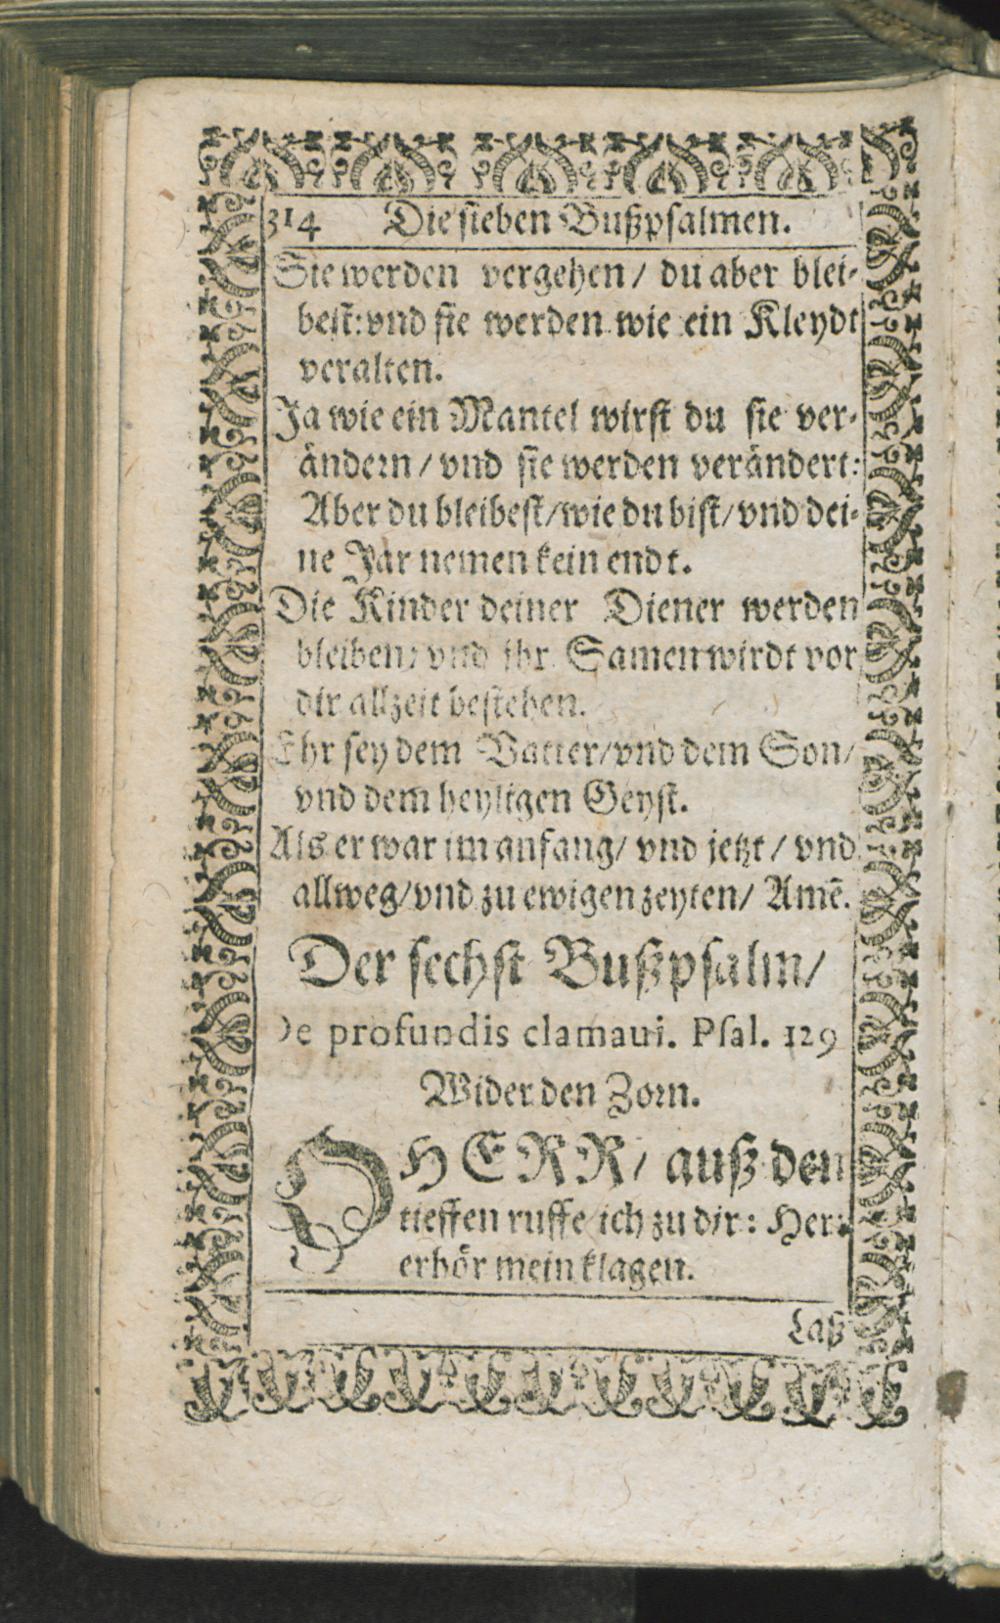 314 Die sieben Bußpsalmen.
Sie werden vergehen / du aber blei-
best: vnd sie werden wie ein Kleydt
veralten.
Ja wie ein Mantel wirst du sie ver-
ändern / vnd sie werden verändert:
Aber du bleibest / wie du bist / vnd dei-
ne Jar nemen kein endt.
Die Kinder deiner Diener werden
bleiben: vnd ihr Samen wirdt vor
dir allzeit bestehen.
Ehr sey dem Vatter / vnd dem Son /
vnd dem heyligen Geyst.
Als er war im anfang / vnd jetzt / vnd
allweg / vnd zu ewigen zeyten / Amē.
Der sechst Bußpsalm /
De profundis clamaui. Psal. 129
Wider den Zorn.
O HERR / auß den
tieffen ruffe ich zu dir: Herr
erhör mein klagen.
Laß